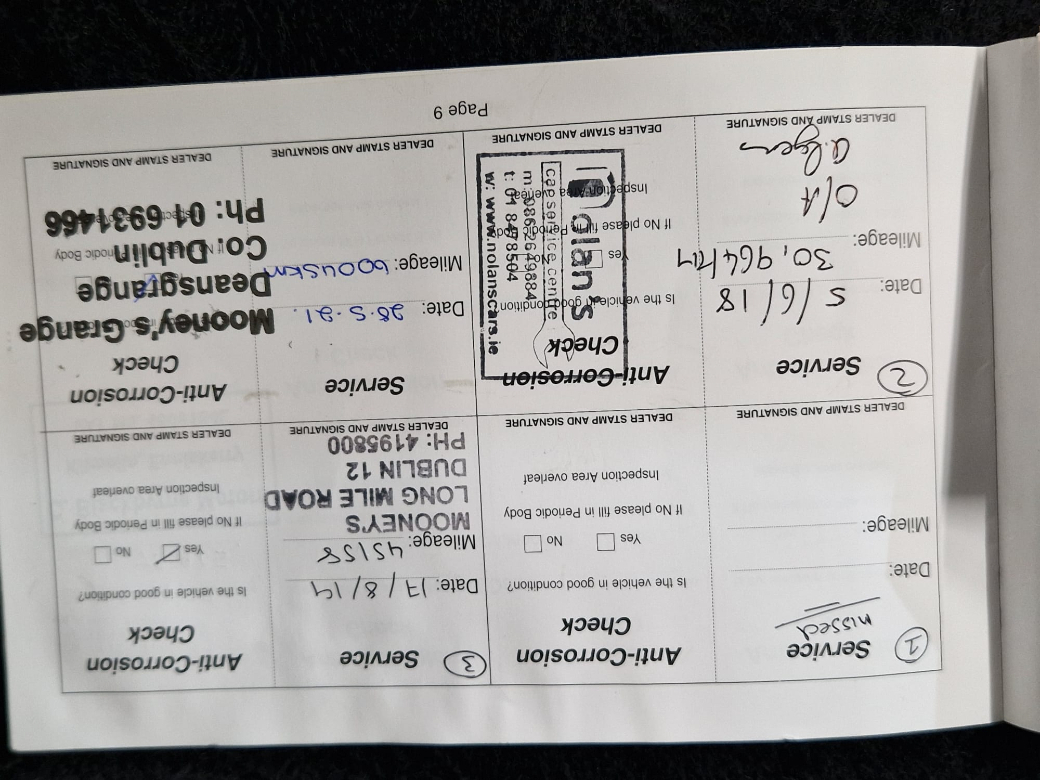 1 Service
missed
Date:
Mileage:
DEALER STAMP AND SIGNATURE
Anti-Corrosion
Check
Is the vehicle in good condition?
Yes No
If No please fill in Periodic Body
Inspection Area overleaf
DEALER STAMP AND SIGNATURE
3 Service
Date: 17/8/19
Mileage: 45158
MOONEYS
LONG MILE ROAD
DUBLIN 12
PH: 4195800
DEALER STAMP AND SIGNATURE
Anti-Corrosion
Check
Is the vehicle in good condition?
Yes No
If No please fill in Periodic Body
Inspection Area overleaf
DEALER STAMP AND SIGNATURE
2 Service
Date: 5/6/18
Mileage: 30,964 km
O/A
DEALER STAMP AND SIGNATURE
Anti-Corrosion
Check
Is the vehicle in good condition
Yes No
If No please fill in Periodic Body
Inspection Area overleaf
nolan's
car service centre
m: 0862649884
t: 01 8478504
w: www.nolanscars.ie
DEALER STAMP AND SIGNATURE
Service
Date: 28.5.21.
Mileage: 60045km
DEALER STAMP AND SIGNATURE
Anti-Corrosion
Check
Mooney's Grange
Deansgrange
Co. Dublin
Ph: 01 6931466
DEALER STAMP AND SIGNATURE
Page 9